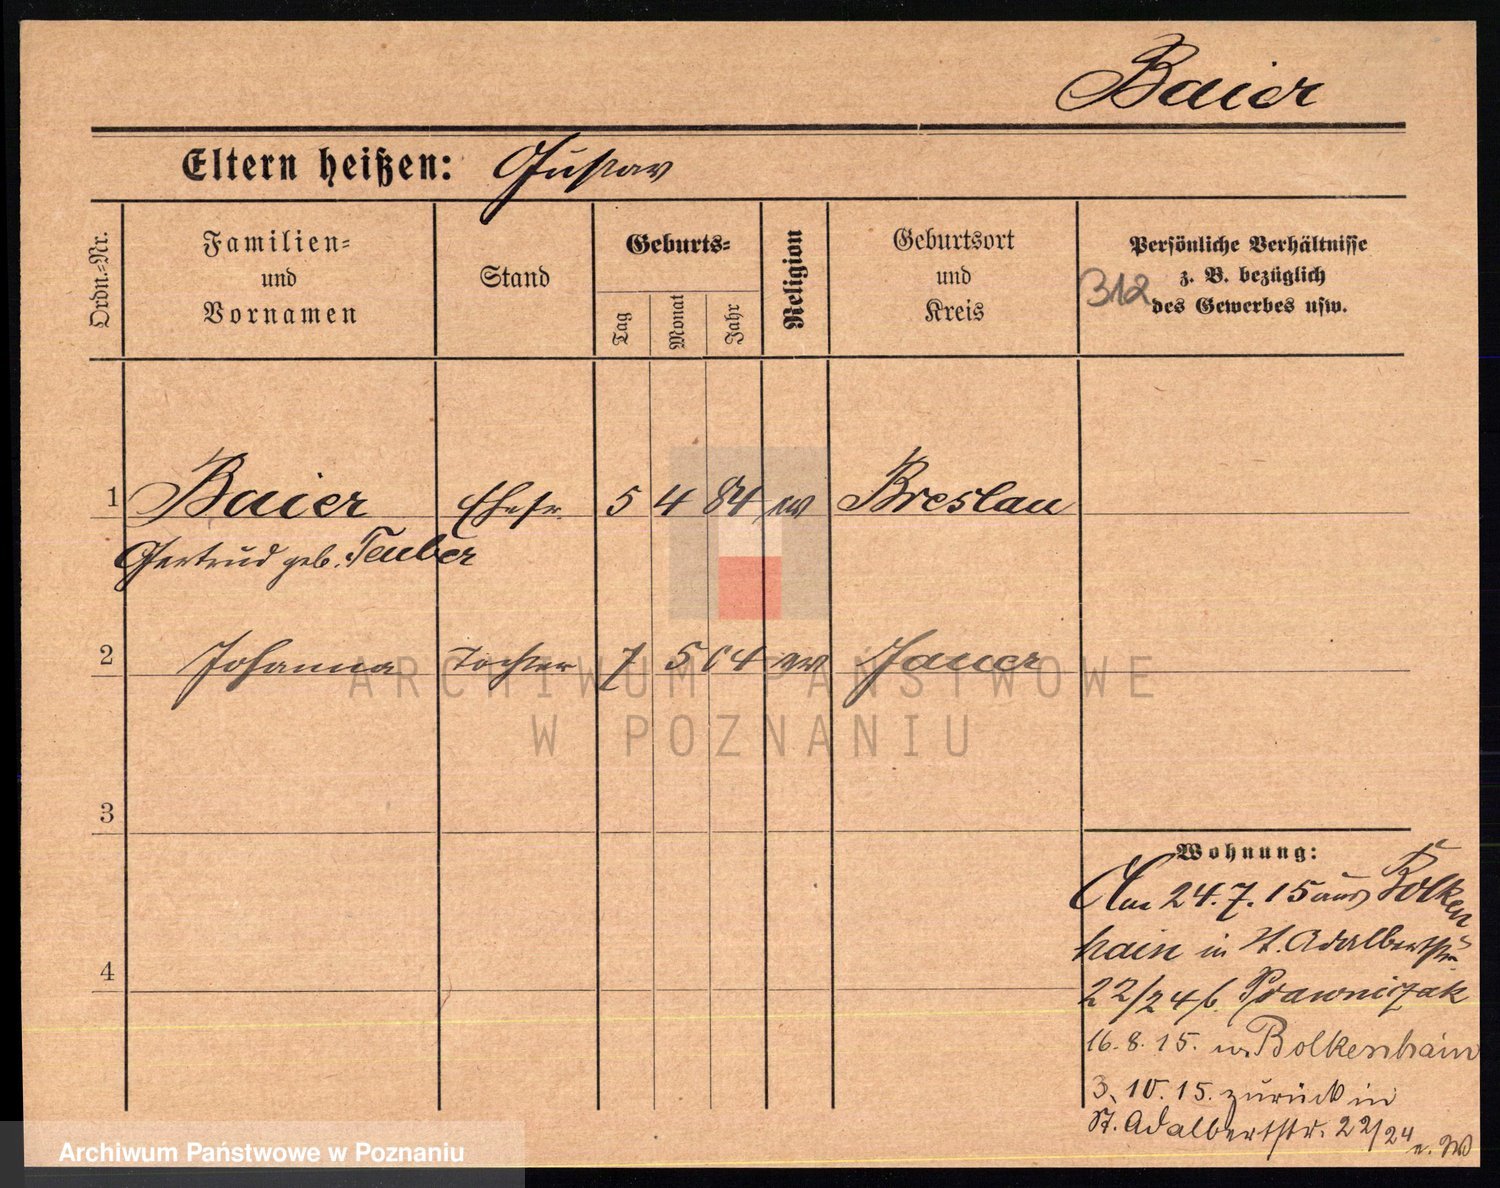 Baier
Eltern heißen: Gustav
Ordn.=Nr.
Familien=
und
Vornamen
Stand
Geburts=
Tag
Monat
Jahr
Religion
Geburtsort
und
Kreis
Persönliche Verhältnisse
z. B. bezüglich
des Gewerbes usw.
312
1 Baier Ehefr. 5 4 84 ev Breslau
Gertrud geb. Teuber
2 Johanna Tochter 7 5 04 ev Jauer
3
4
Wohnung:
Am 24.7.15 aus Bolken
hain in St. Adalbertstr
22/24 b. Prawniczak
16.8.15. Bolkenhain
3.10.15. zurück in
St. Adalbertstr. 22/24
ARCHIWUM PAŃSTWOWE
W POZNANIU
Archiwum Państwowe w Poznaniu